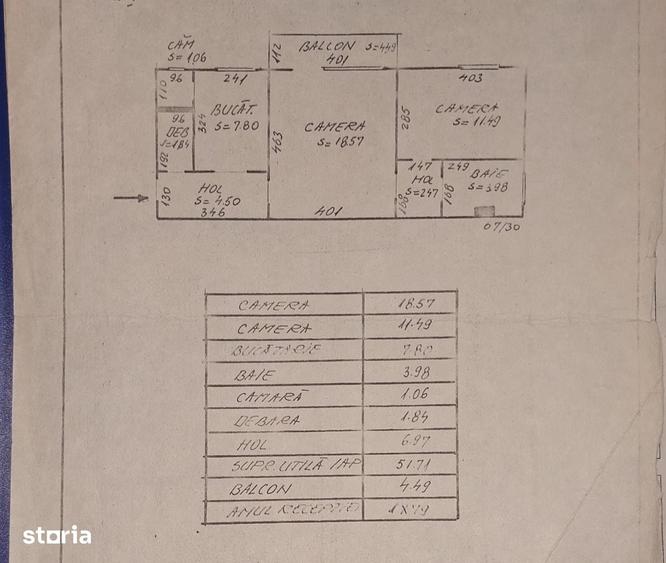 CĂM
S= 1.06
BALCON S=4.49
401
112
96
241
403
110
BUCĂT.
S=7.80
324
96
DEB
S=1.84
192
CAMERA
S= 18.57
463
285
CAMERA
S= 11.49
147
249
HOL
S=2.47
BAIE
S=3.98
168
168
HOL
S= 4.50
346
130
401
07/30
CAMERA 18.57
CAMERA 11.49
BUCĂTĂRIE 7.80
BAIE 3.98
CAMARĂ 1.06
DEBARA 1.84
HOL 6.97
SUPR. UTILĂ /AP 51.71
BALCON 4.49
ANUL RECEPȚIEI
storia